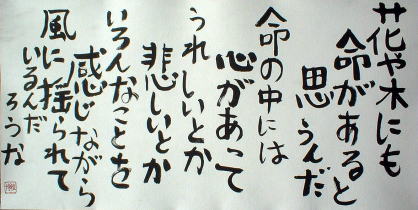 花や木にも
命があると
思うんだ
命の中には
心があって
うれしいとか
悲しいとか
いろんなことを
感じながら
風に揺られて
いるんだ
ろうな